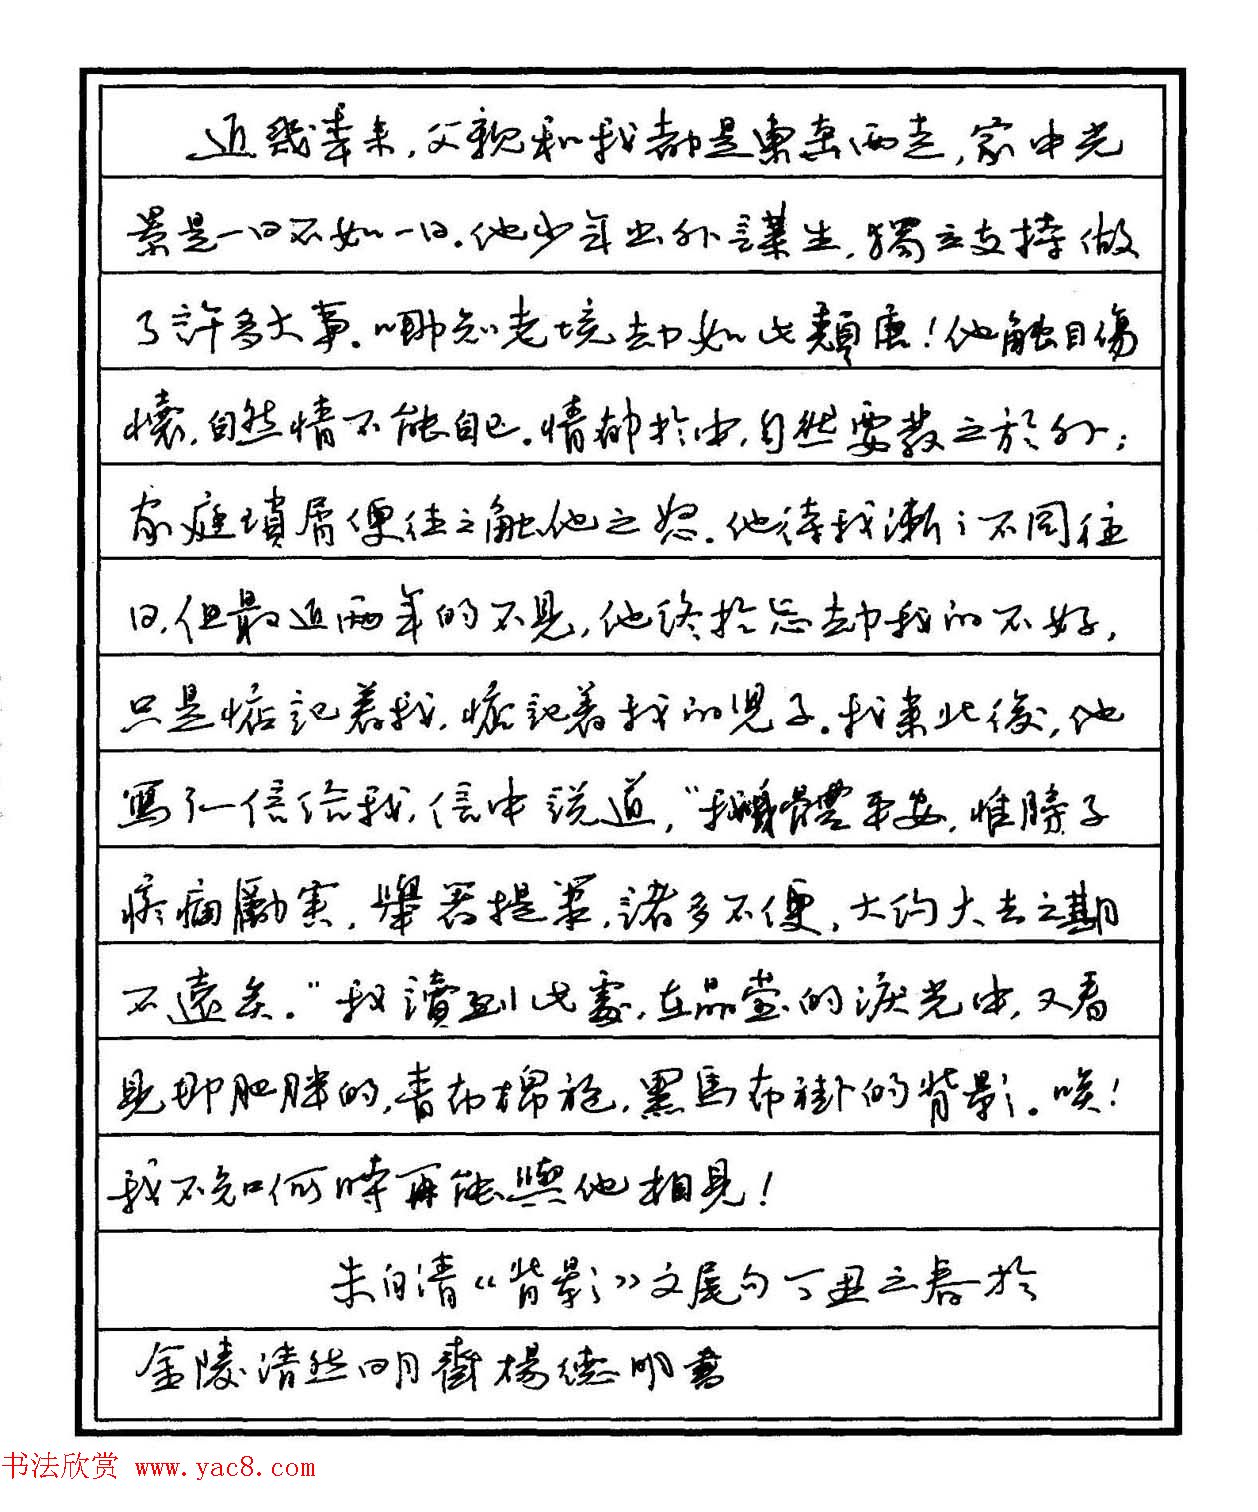 近幾年来，父親和我都是東奔西走，家中光
景是一日不如一日。他少年出外謀生，獨立支持做
了許多大事。哪知老境却如此頹唐！他触目傷
懷，自然情不能自已。情郁於中，自然要發之於外；
家庭瑣屑便往之触他之怒。他待我漸〻不同往
日，但最近兩年的不見，他終於忘却我的不好，
只是惦記着我，惦記着我的児子。我来此後，他
寫了一信给我，信中説道，“我身體平安，惟膀子
疼痛勵害，舉箸提筆，諸多不便，大约大去之期
不遠矣。”我讀到此處，在晶瑩的淚光中，又看
見那肥胖的，青布棉袍，黑馬布褂的背影。唉！
我不知何時再能與他相見！
朱自清《背影》文尾句丁丑之春於
金陵清然明月齋楊德明書
书法欣赏 www.yac8.com